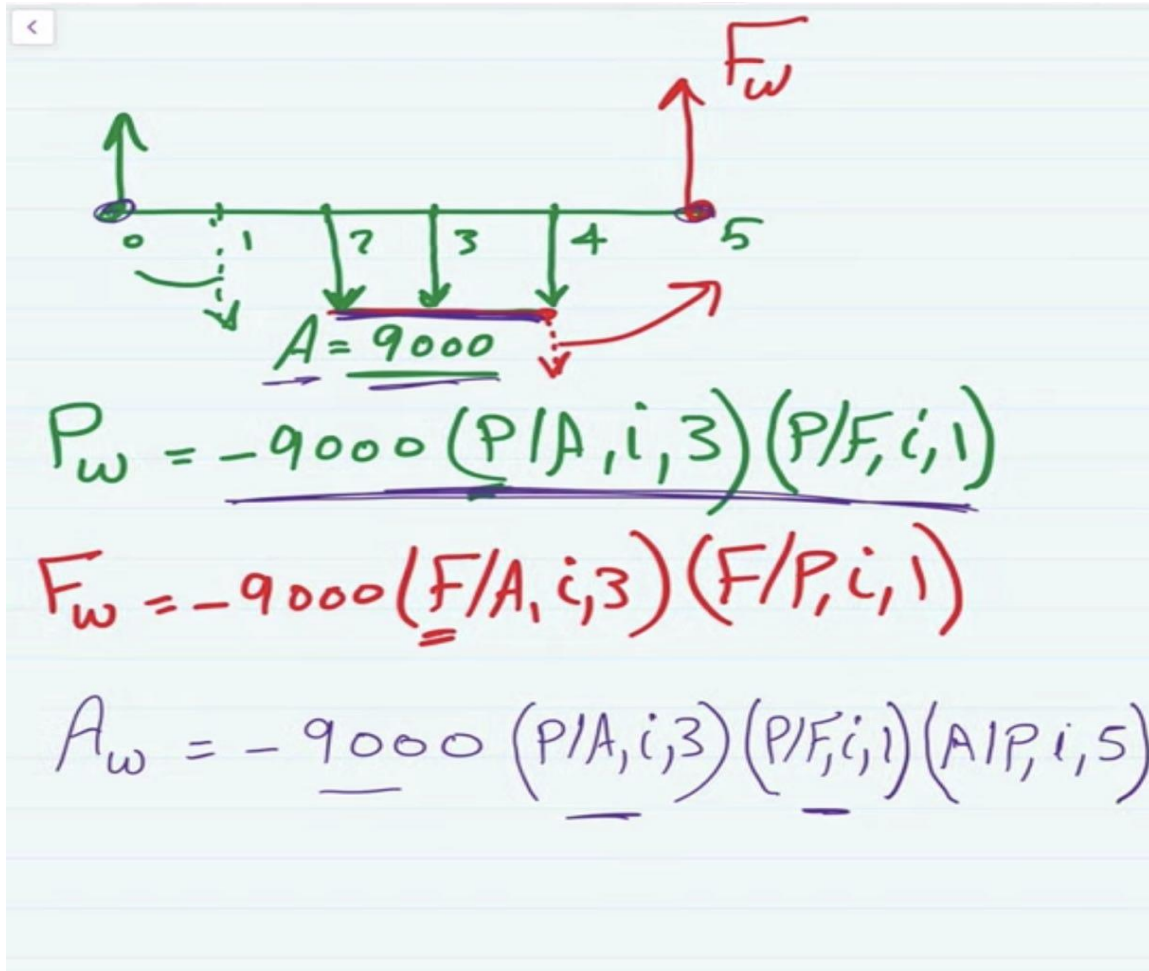 F_w
0 1 2 3 4 5
A = 9000
P_w = -9000 (P/A, i, 3)(P/F, i, 1)
F_w = -9000 (F/A, i, 3)(F/P, i, 1)
A_w = -9000 (P/A, i, 3)(P/F, i, 1)(A/P, i, 5)